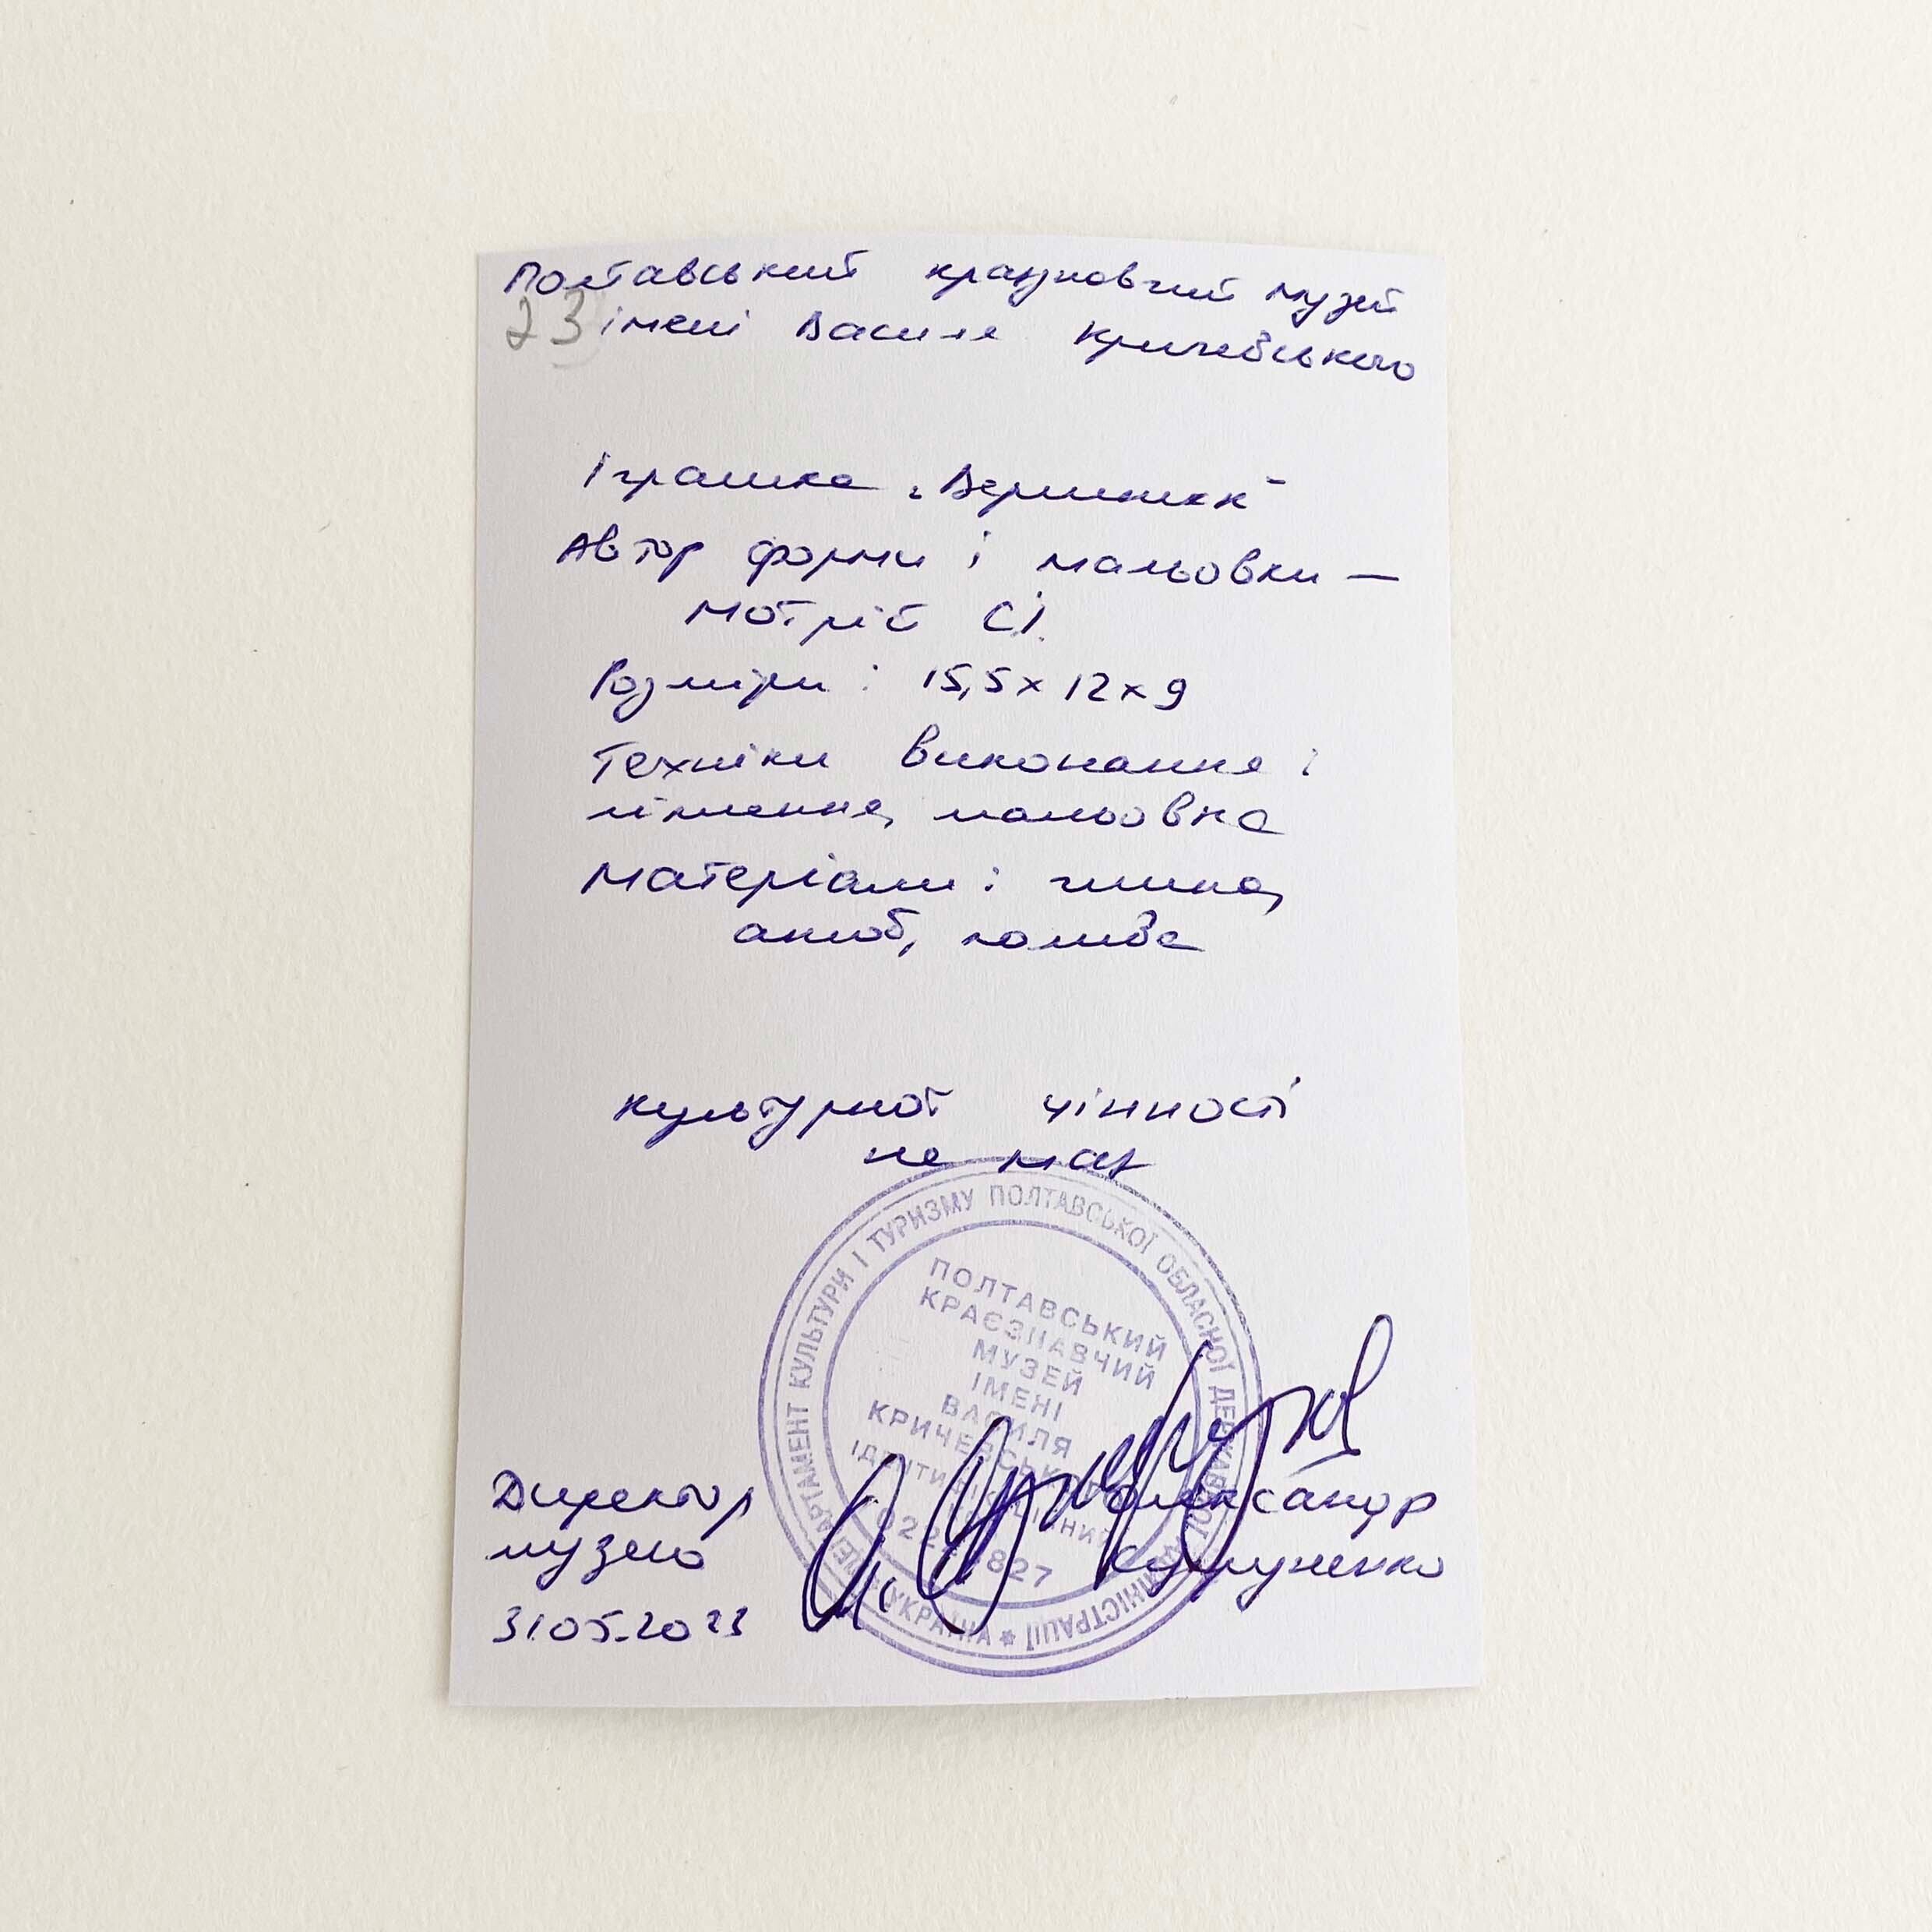 Полтавський краєзнавчий музей
23 імені Василя Кричевського
Іграшка „Вершник"
Автор форми і мальовки —
Мотрій С.І.
Розміри: 15,5 х 12 х 9
Техніки виконання:
ліплення, мальовка
Матеріали: глина,
ангоб, полива
культурної цінності
не має
ДЕПАРТАМЕНТ КУЛЬТУРИ І ТУРИЗМУ ПОЛТАВСЬКОЇ ОБЛАСНОЇ ДЕРЖАВНОЇ АДМІНІСТРАЦІЇ * УКРАЇНА
ПОЛТАВСЬКИЙ
КРАЄЗНАВЧИЙ
МУЗЕЙ
ІМЕНІ
ВАСИЛЯ
КРИЧЕВСЬКОГО
Директор Олександр
музею
31.05.2023